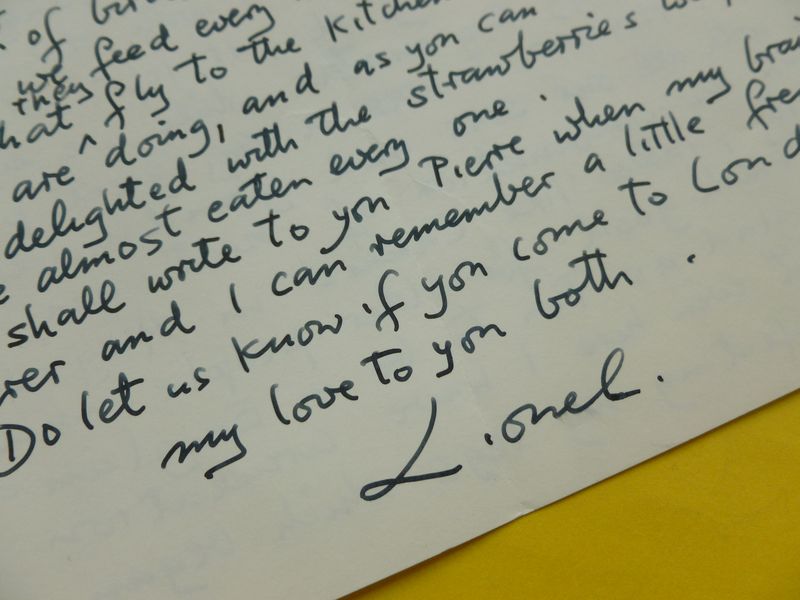 of
we feed every
they
that fly to the kitchen
are ^ doing, and as you can
delighted with the strawberries
almost eaten every one.
shall write to you Pierre when my
and I can remember a little
Do let us know if you come to
my love to you both.
Lionel.